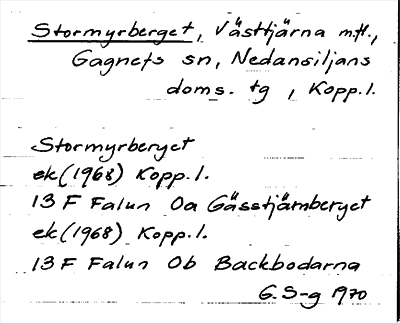 Stormyrberget, Västtjärna m.fl.,
Gagnefs sn, Nedansiljans
doms. tg, Kopp.l.
Stormyrberget
ek(1968) Kopp.l.
13 F Falun 0a Gässtjärnberget
ek(1968) Kopp.l.
13 F Falun 0b Backbodarna
G.S-g 1970